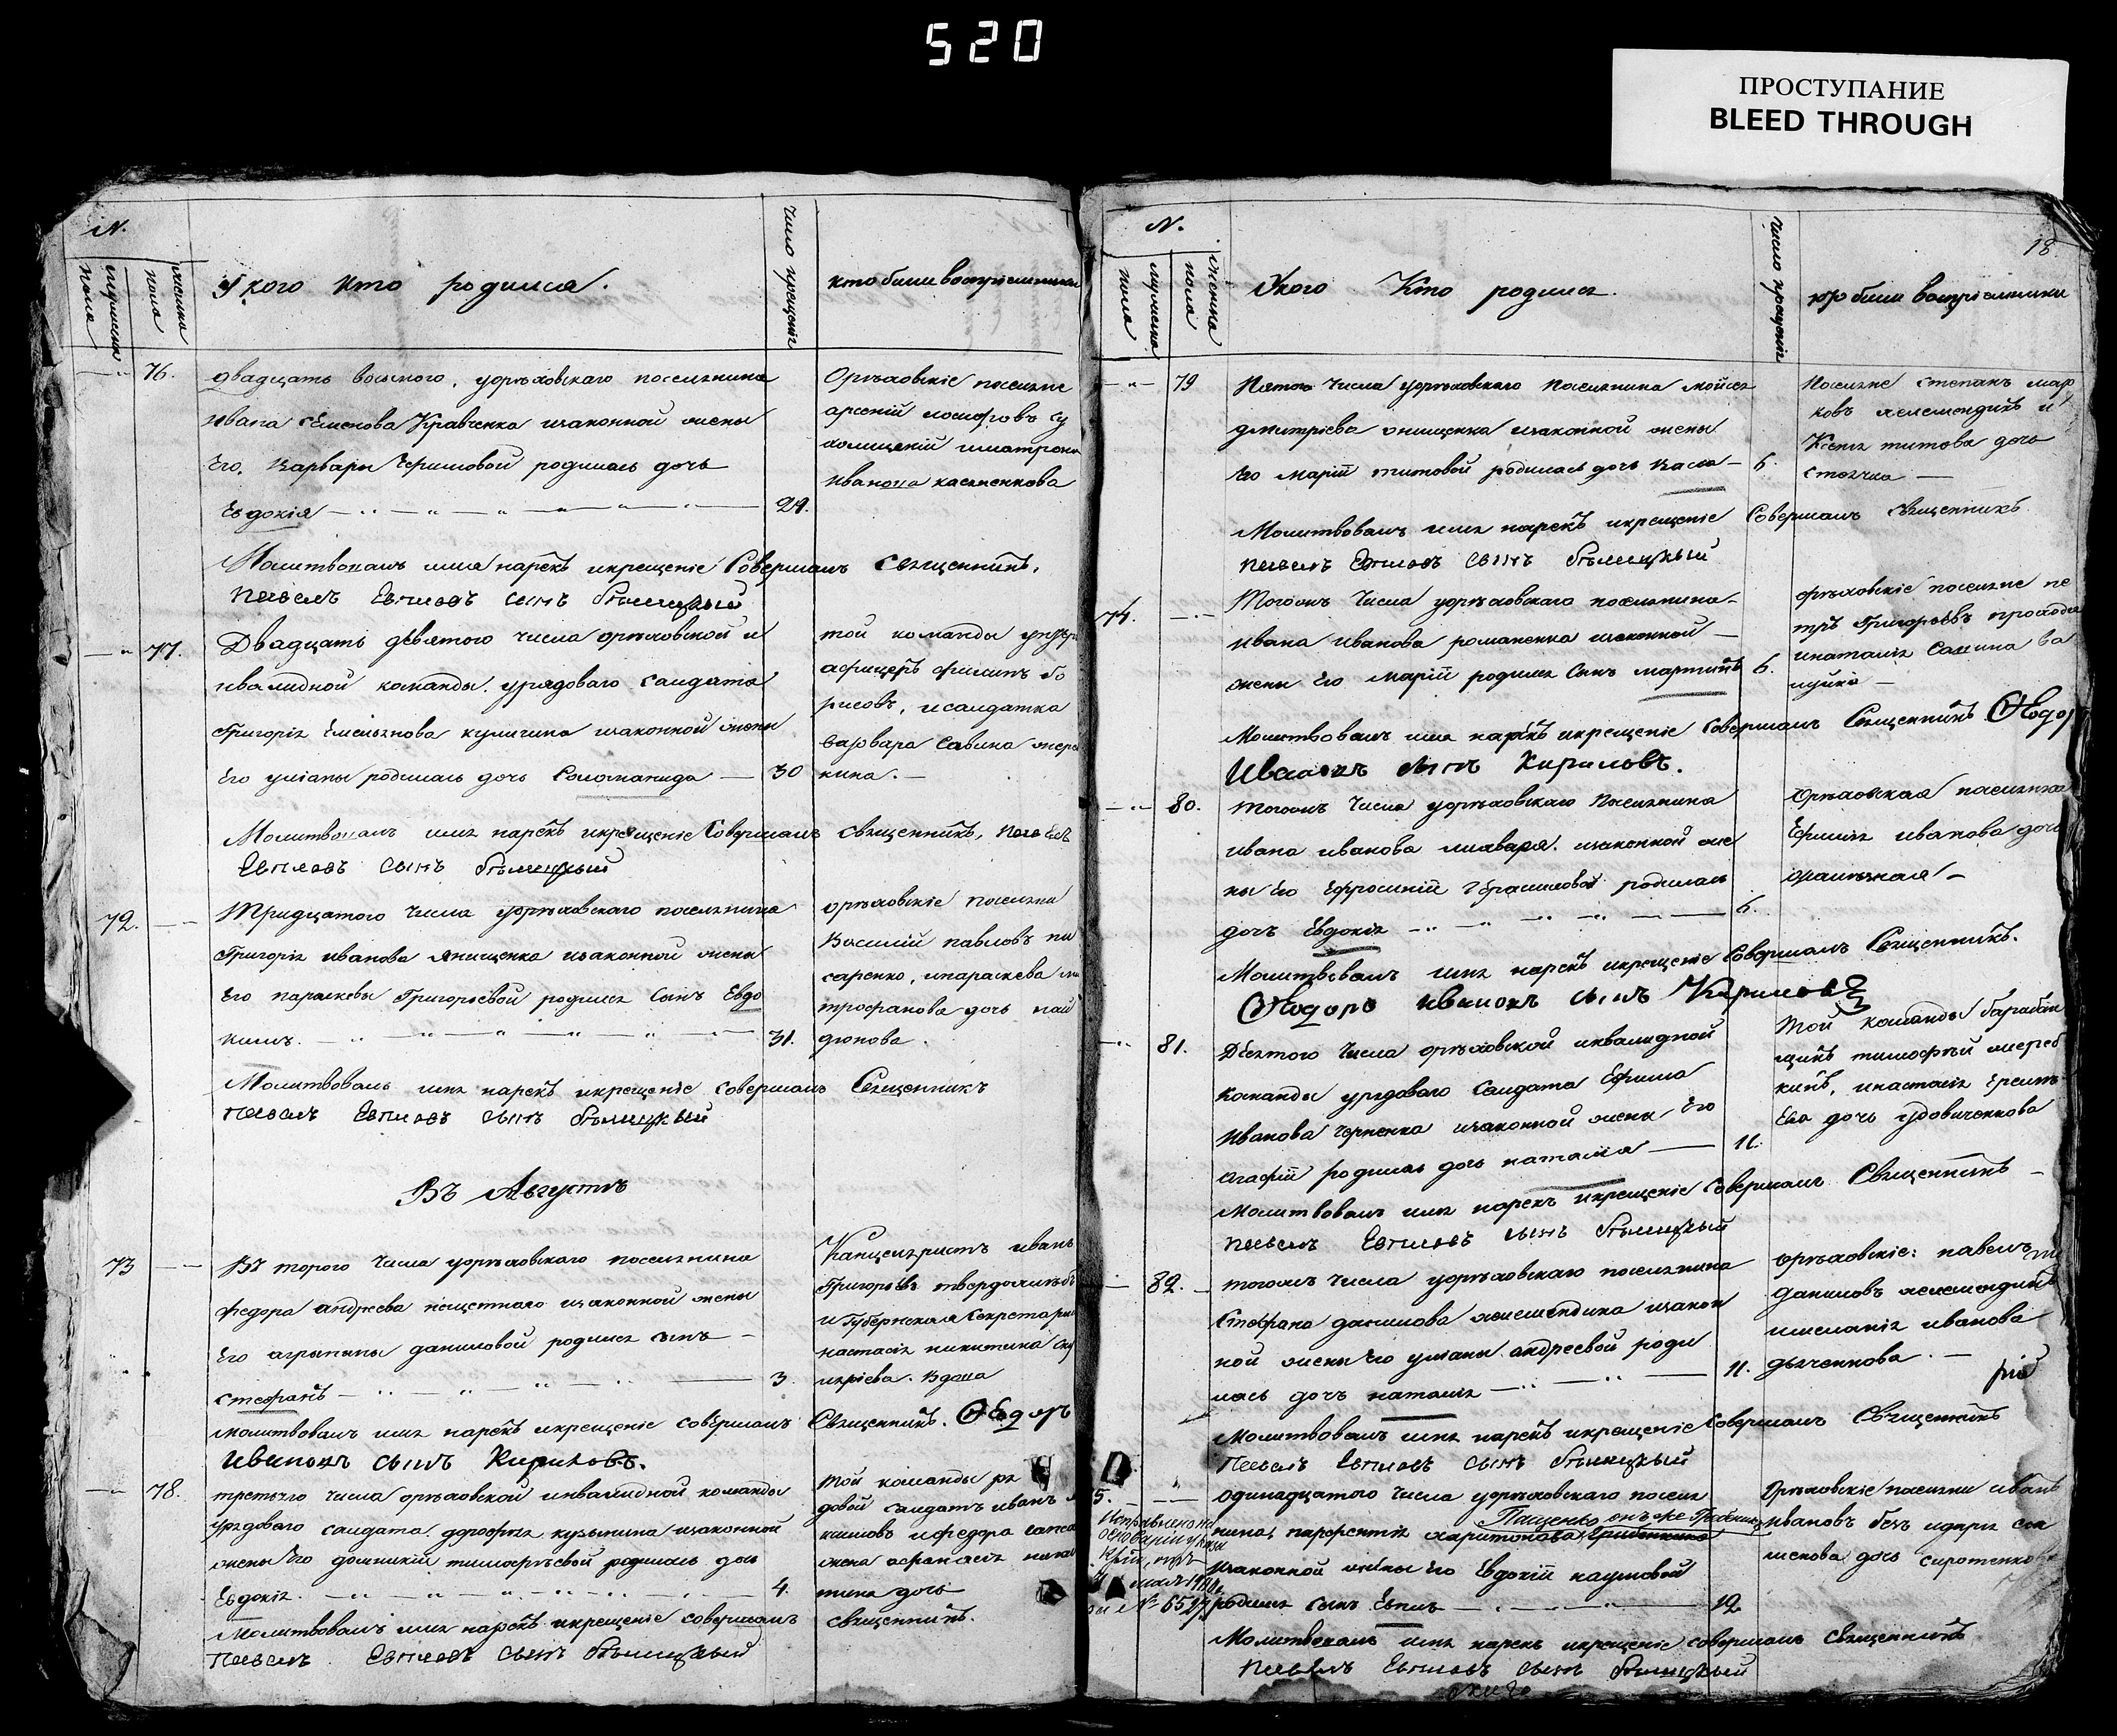 520
ПРОСТУПАНИЕ
BLEED THROUGH
N.
мужеска пола
женска пола
У кого кто родился.
число крещенія
кто были воспріемники
76.
двадцать восмого, уорѣховскаго поселянина
Ивана семенова Кравченка изаконной жены
Его, Варвары Ефимовой родилась дочь
Евдокія
29.
Орѣховскіе поселяне
арсеній иосифовъ су
хомлицкій иматрона
Иванова касяненкова
Молитвовалъ имя нарекъ икрещеніе Совершалъ священникъ.
Павелъ Евтиовъ сынъ Бѣлицкый
77.
Двадцать девятого числа орѣховской и
нвалидной команды. урядоваго салдата
Григорія Емельянова куличина изаконной жены
Его уліаны родилась дочь Соломанида
30
той команды ундеръ
афицеръ филипъ бо
рисовъ, исалдатка
варвара Савина жере
кина.
Молитвовалъ имя нарекъ икрещеніе Совершалъ священникъ, Павелъ
Евтиовъ сынъ Бѣлицкый
72.
Тридцатого числа уорѣховскаго поселянина
Григорія иванова Янищенка изаконной жены
Его параскевы Григорьевой родился Сынъ Евдо
кимъ.
31.
орѣховскіе поселяни
Василій павловъ пи
саренко, ипараскева ми
трофанова дочь най
дюнова.
Молитвовалъ имя нарекъ икрещеніе совершалъ Священникъ
Павелъ Евтиовъ сынъ Бѣлицкый
Въ Августѣ
73
Второго числа уорѣховскаго поселянина
Федора андреева нещетнаго изаконной жены
Его агрыпины даниловой родился сынъ
стефанъ
3.
Канцеляристъ иванъ
Григорьевъ твердохлѣбъ
и Губернская Секретарша
настасія никитина
вдова
молитвовалъ имя нарекъ икрещеніе совершалъ Священникъ. Ѳеодоръ
Ивановъ сынъ Кириловъ.
78.
третьяго числа орѣховской инвалидной команды
Урядоваго салдата дорофея кузьмина изаконной
жены Его домникіи тимофѣевой родилась дочь
Евдокія.
4.
той команды ря
довой салдатъ иванъ
жена афанасія
тина дочь
Молитвовалъ имя нарекъ икрещеніе совершалъ священникъ.
Павелъ Евтиовъ сынъ Бѣлицкый
18
N.
мужеска пола
женска пола
У кого Кто родился.
число крещенія
кто были воспріемники
79
Пятого числа уорѣховскаго Поселянина мойсея
дмитріева онищенка изаконной жены
Его маріи титовой родилась дочь васса
6.
Поселяне степанъ мар
ковъ желемендикъ и
Ксенія титова дочь
Молитвовалъ имя нарекъ икрещеніе Совершалъ священникъ.
Павелъ Евтиовъ сынъ Бѣлицкый
74.
Тогожъ числа уорѣховскаго поселянина
Ивана Иванова романенка изаконной
жены Его маріи родился Сынъ мартинъ
6.
орѣховскіе поселяне пе
тръ Григорьевъ проход
инаталія Савина ва
Молитвовалъ имя нарекъ икрещеніе совершалъ Священникъ Ѳеодоръ
Ивановъ сынъ Кириловъ.
80.
тогожъ числа уорѣховскаго Поселянина
ивана иванова лихваря. изаконной же
ны Его Ефросиніи Герасимовой родилась
дочь Евдокія
6.
Орѣховская поселянка
Ефимія иванова дочь
Молитвовалъ имя нарекъ икрещеніе Совершалъ Священникъ.
Ѳеодоръ Ивановъ сынъ Кириловъ
81.
Девятого числа орѣховской инвалидной
команды урядоваго салдата Ефима
Иванова черненка изаконной жены Его
агафіи родилась дочь наталія
11.
той команды барабан
щикъ тимофѣй жереб
кинъ, инастасія Еремѣ
Ева дочь удовиченкова
Молитвовалъ имя нарекъ икрещеніе Совершалъ Священникъ
Павелъ Евтиовъ сынъ Бѣлицкый
82.
тогожъ числа уорѣховскаго поселянина
Стефана данилова желемендика изакон
ной жены Его уліаны андреевой роди
лась дочь наталія
11.
орѣховскіе: павелъ
даниловъ желемендикъ
имеланія иванова
дьяченкова.
рій
Молитвовалъ имя нарекъ икрещеніе совершалъ Священникъ
Павелъ Евтиовъ сынъ Бѣлицкый
75.
Исправлено на
основаніи указа
№ 6527
одинадцатого числа уорѣховскаго посел
Пащенко онъ же Грибенко
нина, парфентія харитонова Грибенкина
изаконной жены Его Евдокіи наумовой
родился сынъ Евтихъ
12
Орѣховскіе поселяни иванъ
Ивановъ безъ идарія сам
илова дочь сиротенкова
Молитвовалъ имя нарекъ икрещеніе совершалъ священникъ
Павелъ Евтиовъ сынъ Бѣлицкый